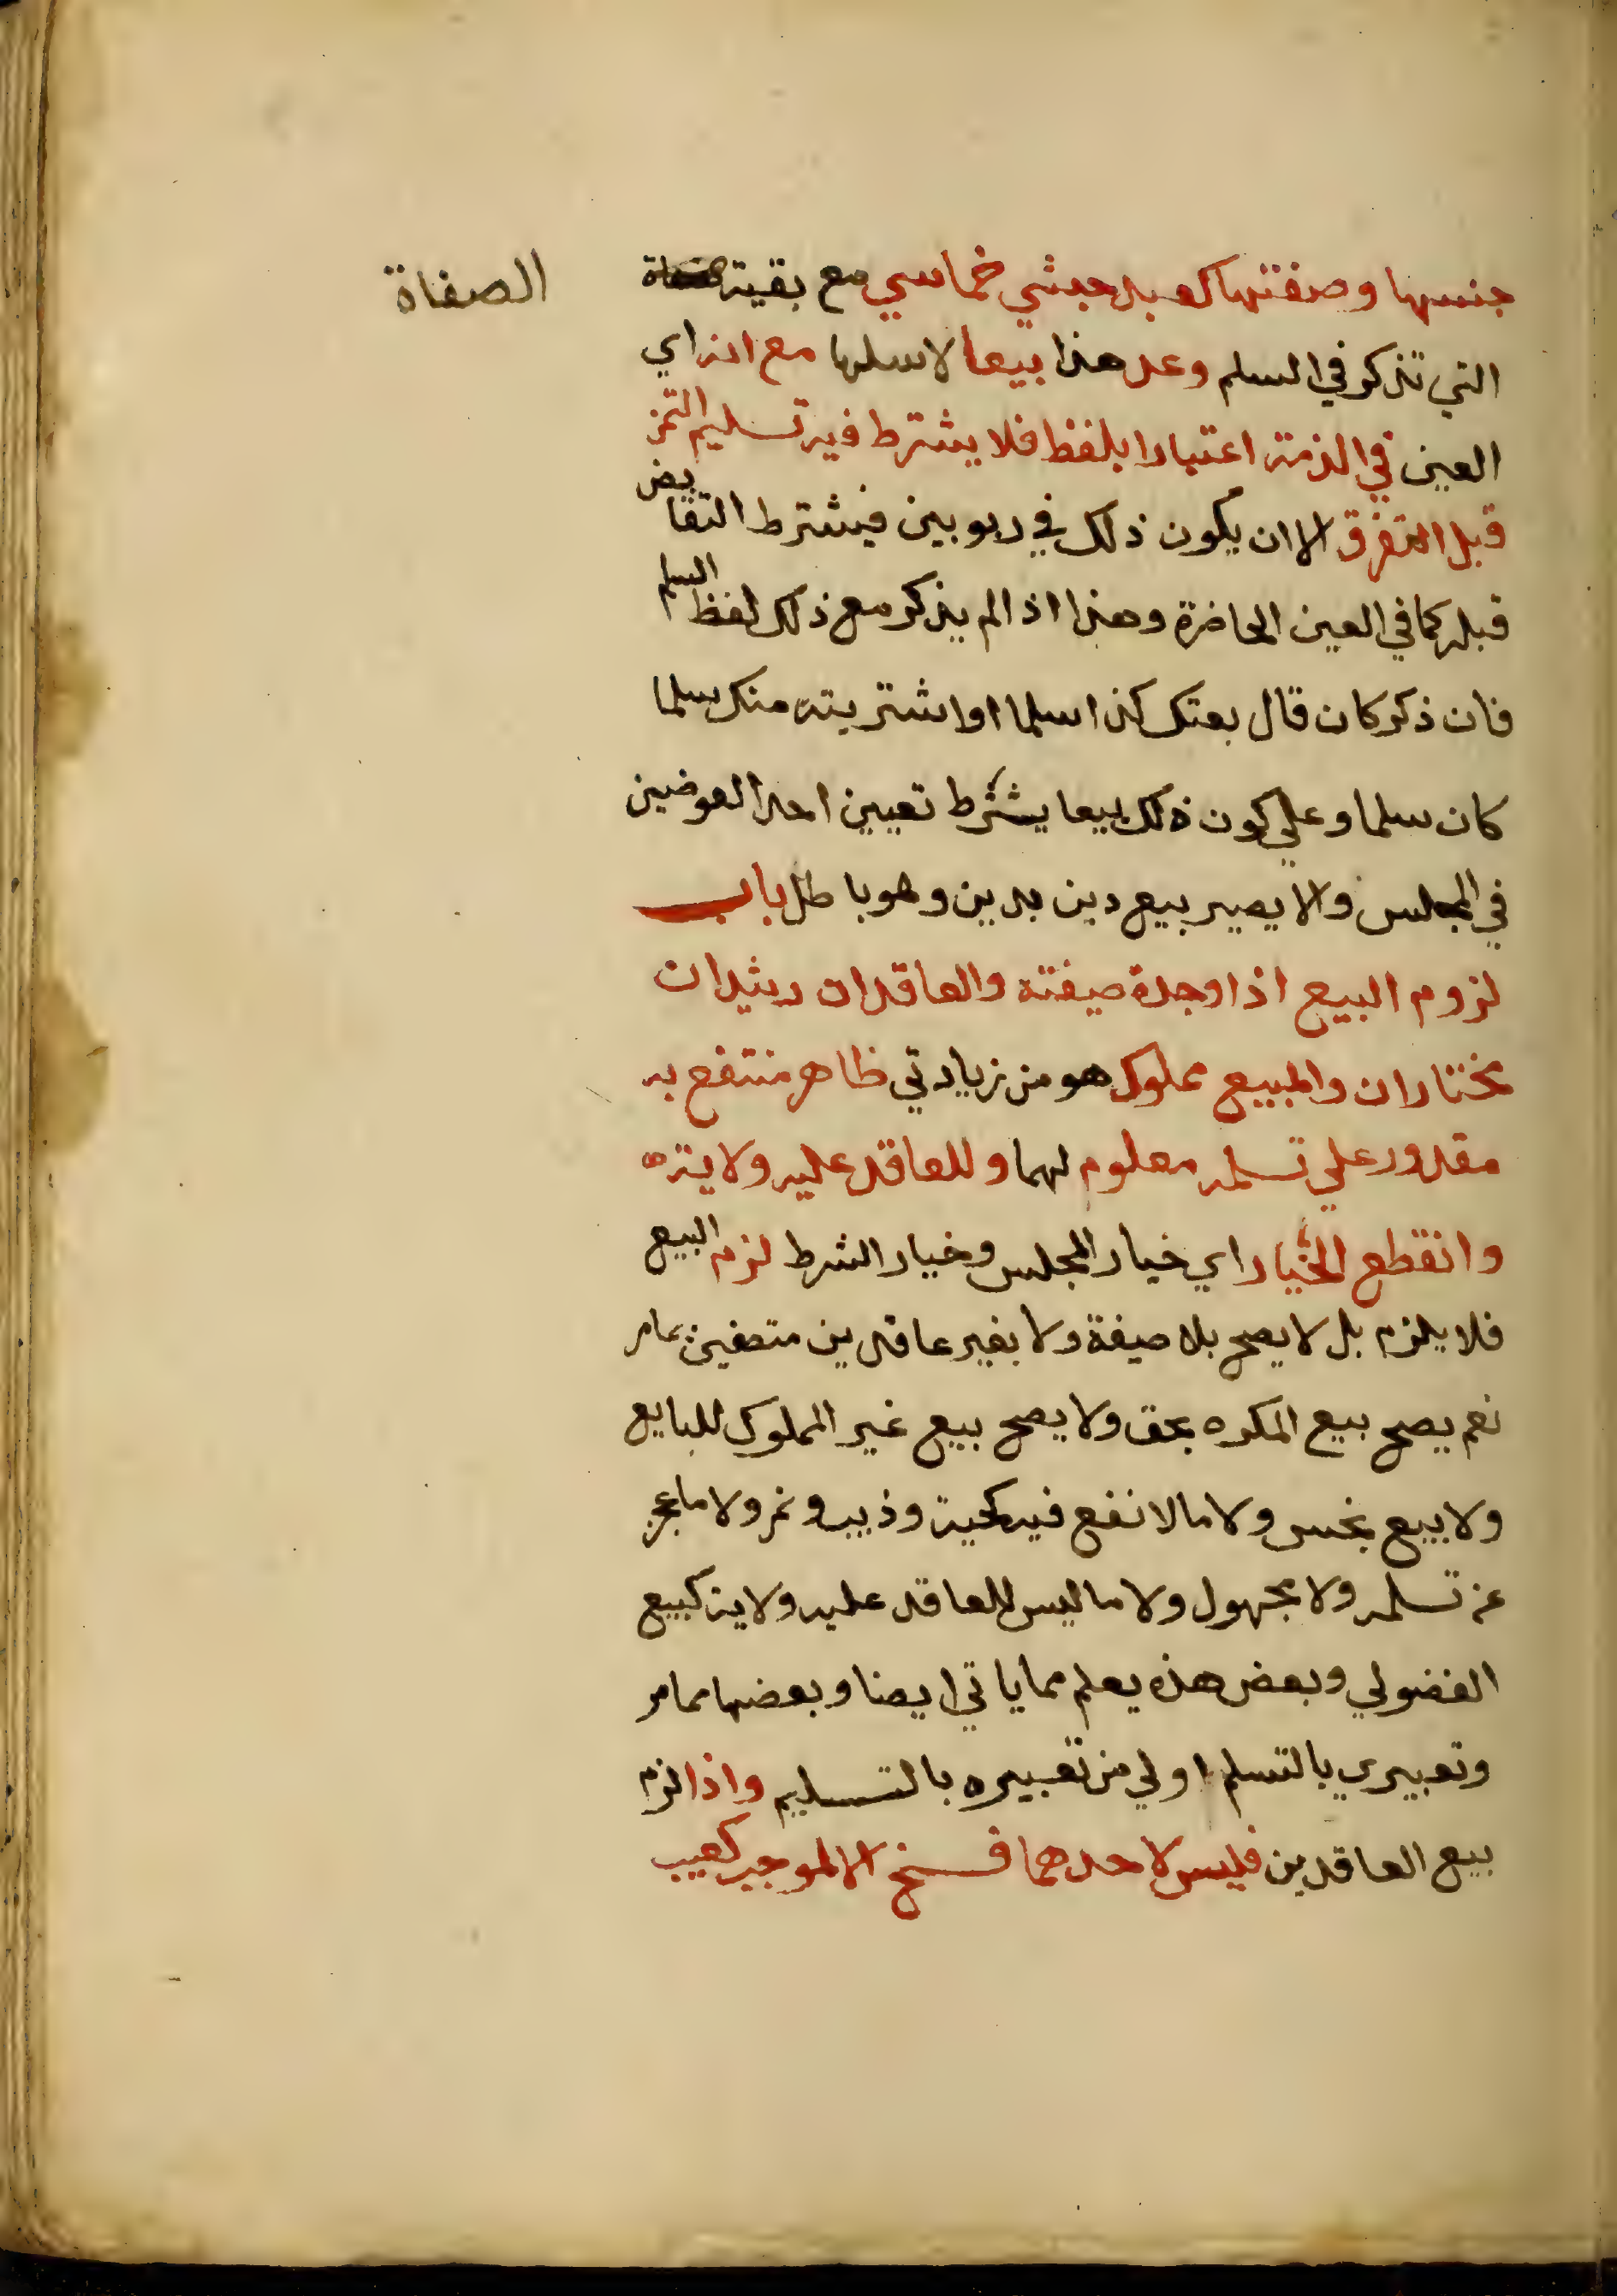 جنسها وصفتها كعبد حبشي خماسي مع بقية
الصفاة
التي تذكر في السلم وعد هذا بيعا لا سلما مع انه اي
العين في الذمة اعتبارا بلفظ فلا يشترط فيه تسليم الثمن
قبل التفرق الا ان يكون ذلك في ربويين فيشترط التقابض
قبله كما في العين الحاضرة وهذا اذا لم يذكر مع ذلك لفظ السلم
فان ذكر كان قال بعتك كذا سلما او اشتريته منك سلما
كان سلما وعلي كون ذلك بيعا يشترط تعيين احد العوضين
في المجلس والا يصير بيع دين بدين وهو باطل باب
لزوم البيع اذا وجدة صيغته والعاقدان رشيدان
مختاران والمبيع مملوك هو من زيادتي ظاهر منتفع به
مقدور علي تسلمه معلوم لهما وللعاقد عليه ولاية
وانقطع الخيار اي خيار المجلس وخيار الشرط لزم البيع
فلا يلزم بل لا يصح بلا صيغة ولا بغير عاقدين متصفين بما مر
نعم يصح بيع المكره بحق ولا يصح بيع غير المملوك للبايع
ولا بيع نجس ولا ما لا نفع فيه كحية وذيب ونمر ولا ما عجز
عن تسلمه ولا مجهول ولا ما ليس للعاقد عليه ولاية كبيع
الفضولي وبعض هذه يعلم مما ياتي ايضا وبعضها مما مر
وتعبيري بالتسلم اولي من تعبيره بالتسليم واذا لزم
بيع العاقدين فليس لاحدهما فسخ الا لموجبه كعيب